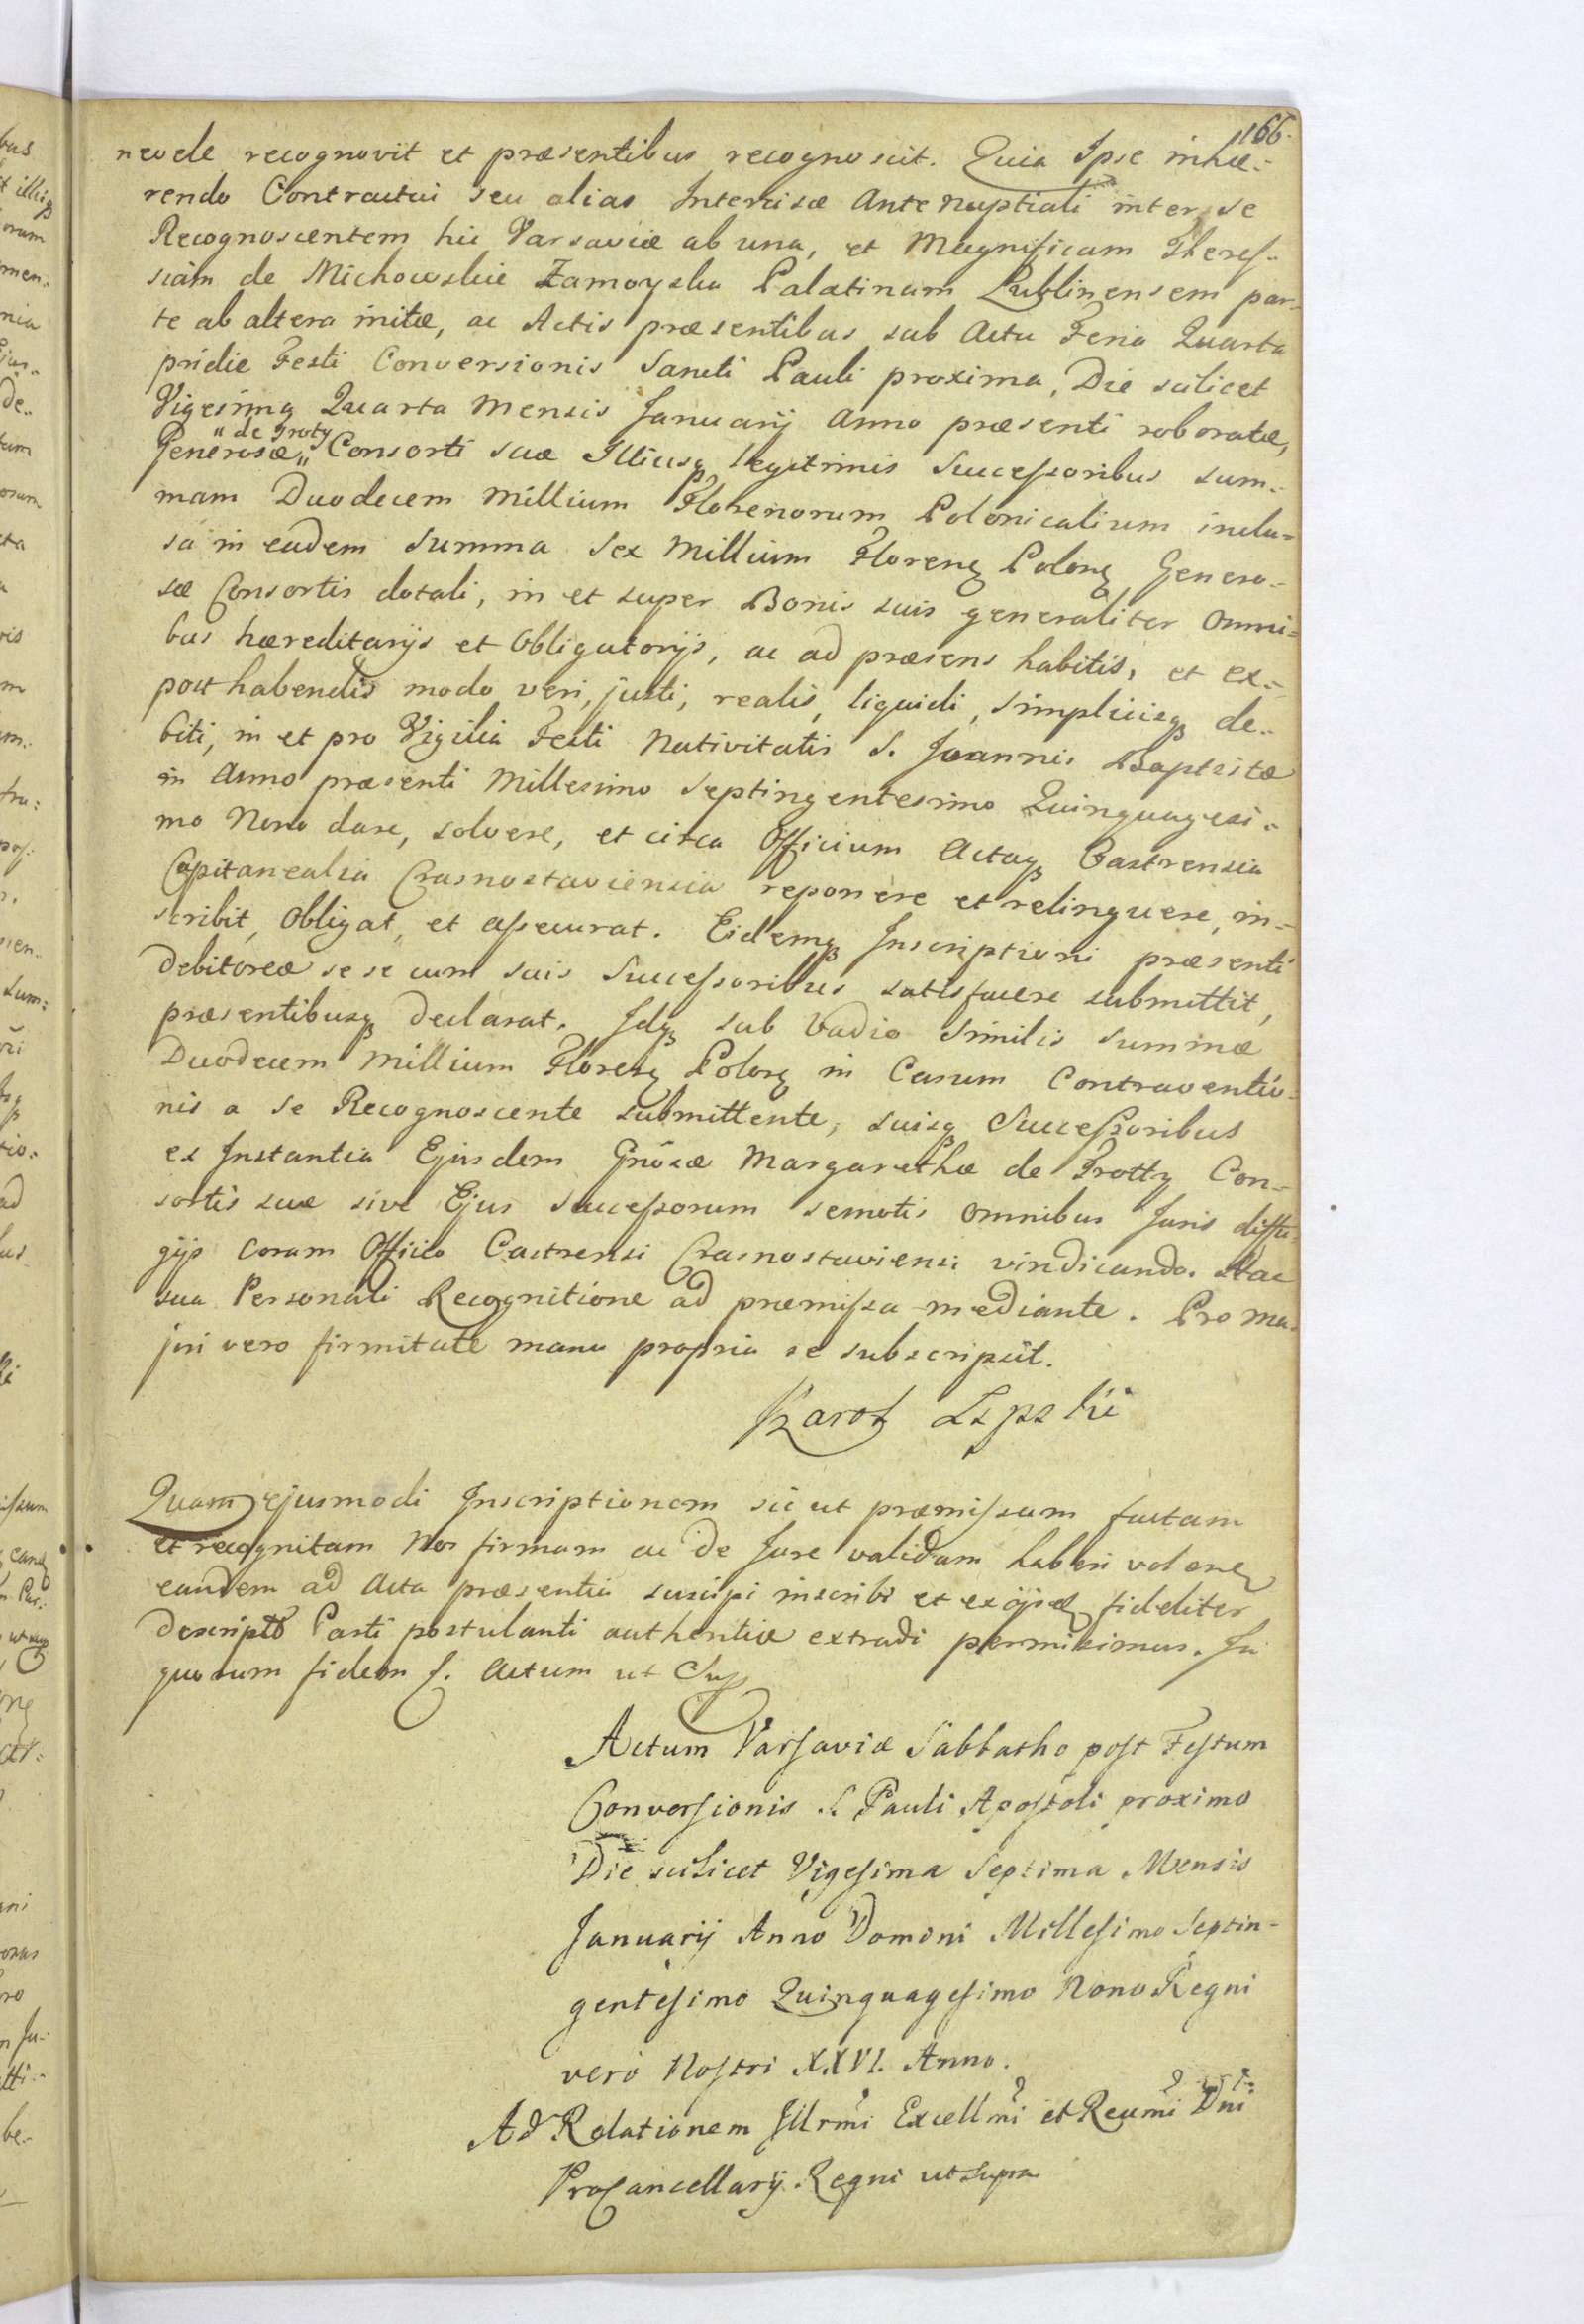 166.
nevole recognovit et præsentibus recognoscit. Quia Ipse inhæ-
rendo Contractui seu alias Intercisæ Ante nuptiali inter se
Recognoscentem hic Varsaviæ ab una, et Magnificam Theres-
siam de Michowskie Zamoyska Palatinam Lublinensem par-
te ab altera initæ, ac Actis præsentibus sub Actu Feria Quarta
pridie Festi Conversionis Sancti Pauli proxima, Die scilicet
Vigesima Quarta Mensis Januarij Anno præsenti roboratæ,
" de Troty
Generosæ " Consorti suæ Illiusq legitimis Successoribus sum-
mam Duodecem Millium Florenorum Polonicalium inclu-
sa in eadem Summa Sex Millium Floreng Polong Genero-
sæ Consortis dotali, in et super Bonis suis generaliter Omni-
bus hæreditarijs et Obligatorijs, ac ad præsens habitis, et ex-
post habendis modo veri, justi, realis, liquidi, simplicisq de-
biti, in et pro Vigilia Festi Nativitatis S. Joannis Baptistæ
in Anno præsenti Millesimo Septingentesimo Quinquagesi-
mo Nono dare, solvere, et circa Officium Actaq Castrensia
Capitanealia Crasnostaviensia reponere et relinquere, in-
scribit, Obligat, et assecurat. Eidemq Inscriptioni præsenti
debitoreæ se se cum suis Successoribus satisfacere submittit,
præsentibusq declarat. Idq sub Vadio similis Summæ
Duodecem Millium Floreng Polong in Casum Contraventio-
nis a se Recognoscente submittente, suisq Successoribus
ex Instantia Ejusdem Gnosæ Margarethæ de Trotty Con-
sortis suæ sive Ejus Successorum semotis Omnibus Juris diffu-
gijs coram Officio Castrensi Crasnostaviensi vindicando. Hac
sua Personali Recognitione ad præmissa mediante. Pro ma-
jori vero firmitate manu propria se subscripsit.
Karol Lipski
Quam ejusmodi Inscriptionem sic ut præmissum factam
et recognitam Nos firmam ac de Jure validam haberi volens
eandem ad Acta præsentia suscipi inscribi et exinde fideliter
descripto Parti postulanti authentice extradi permisimus. In
quorum fidem f. Actum ut Sup
Actum Varsaviæ Sabbatho post Festum
Conversionis S. Pauli Apostoli proximo
Die scilicet Vigesima Septima Mensis
Januarij Anno Domini Millesimo Septin-
gentesimo Quinquagesimo Nono Regni
vero Nostri XXVI. Anno.
Ad Relationem Illrmi Excellmi et Reumi Dni
ProCancellarij Regni ut supra